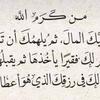 من كرم الله
يك المال، ثم يلهمك أن تـ
لك فقيرًا يأخذها ثم يقبلها
لك في رزقك الذي هو أعطا